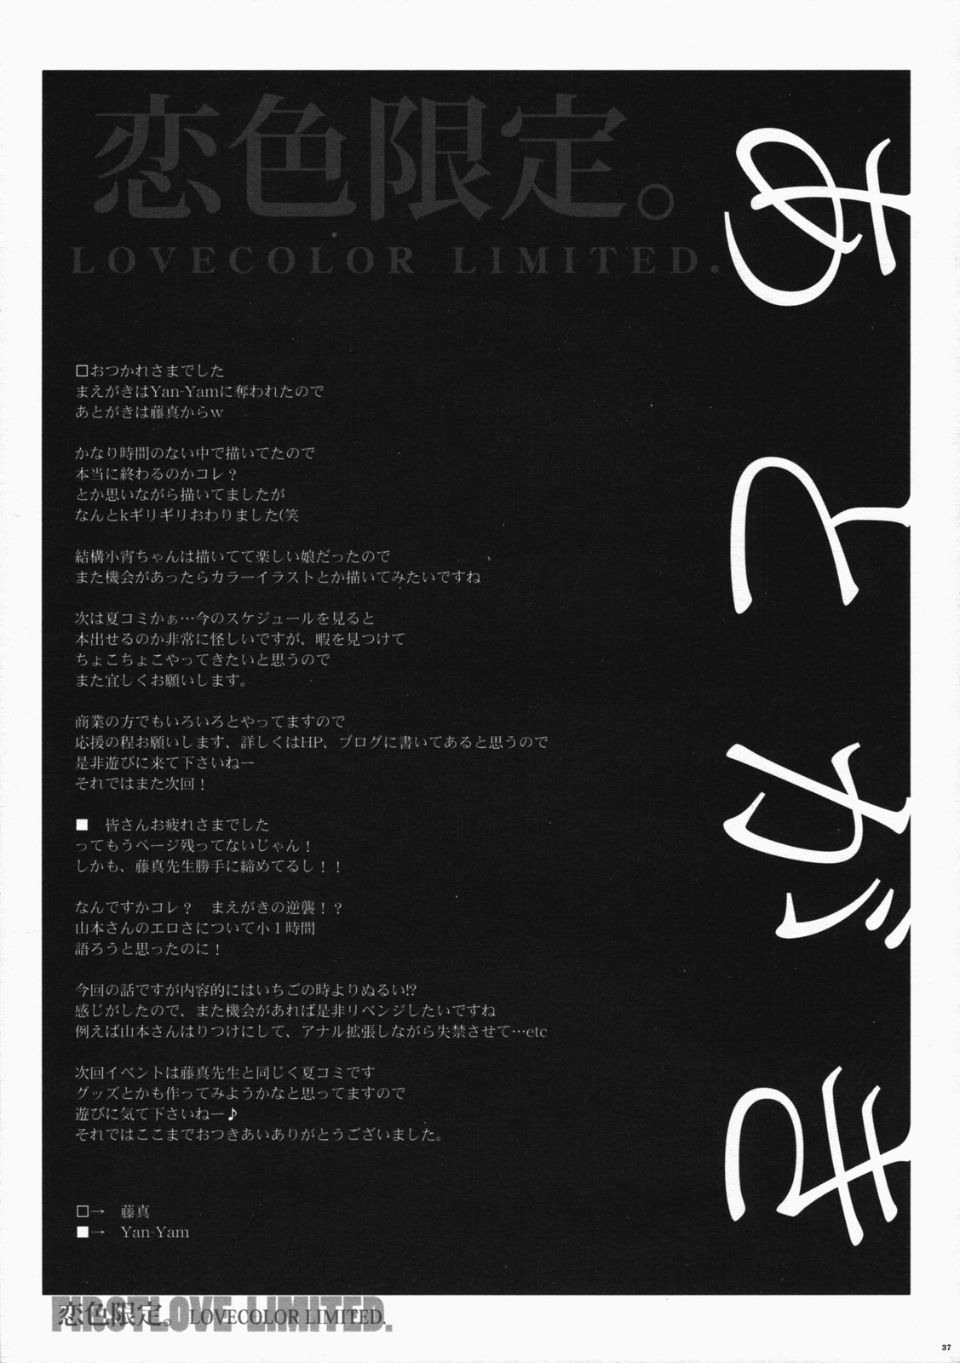 恋色限定。
LOVECOLOR LIMITED.
あとがき
□おつかれさまでした
まえがきはYan-Yamに奪われたので
あとがきは藤真からw
かなり時間のない中で描いてたので
本当に終わるのかコレ？
とか思いながら描いてましたが
なんとkギリギリおわりました(笑
結構小宵ちゃんは描いてて楽しい娘だったので
また機会があったらカラーイラストとか描いてみたいですね
次は夏コミかぁ…今のスケジュールを見ると
本出せるのか非常に怪しいですが、暇を見つけて
ちょこちょこやってきたいと思うので
また宜しくお願いします。
商業の方でもいろいろとやってますので
応援の程お願いします、詳しくはHP、ブログに書いてあると思うので
是非遊びに来て下さいねー
それではまた次回！
■　皆さんお疲れさまでした
ってもうページ残ってないじゃん！
しかも、藤真先生勝手に締めてるし！！
なんですかコレ？　まえがきの逆襲！？
山本さんのエロさについて小１時間
語ろうと思ったのに！
今回の話ですが内容的にはいちごの時よりぬるい!?
感じがしたので、また機会があれば是非リベンジしたいですね
例えば山本さんはりつけにして、アナル拡張しながら失禁させて…etc
次回イベントは藤真先生と同じく夏コミです
グッズとかも作ってみようかなと思ってますので
遊びに気て下さいねー♪
それではここまでおつきあいありがとうございました。
□→　藤真
■→　Yan-Yam
FIRSTLOVE LIMITED.
恋色限定。LOVECOLOR LIMITED.
37